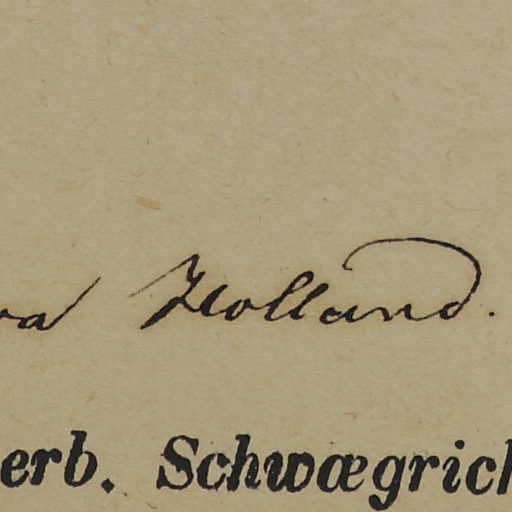 va Holland.
erb. Schwægrich